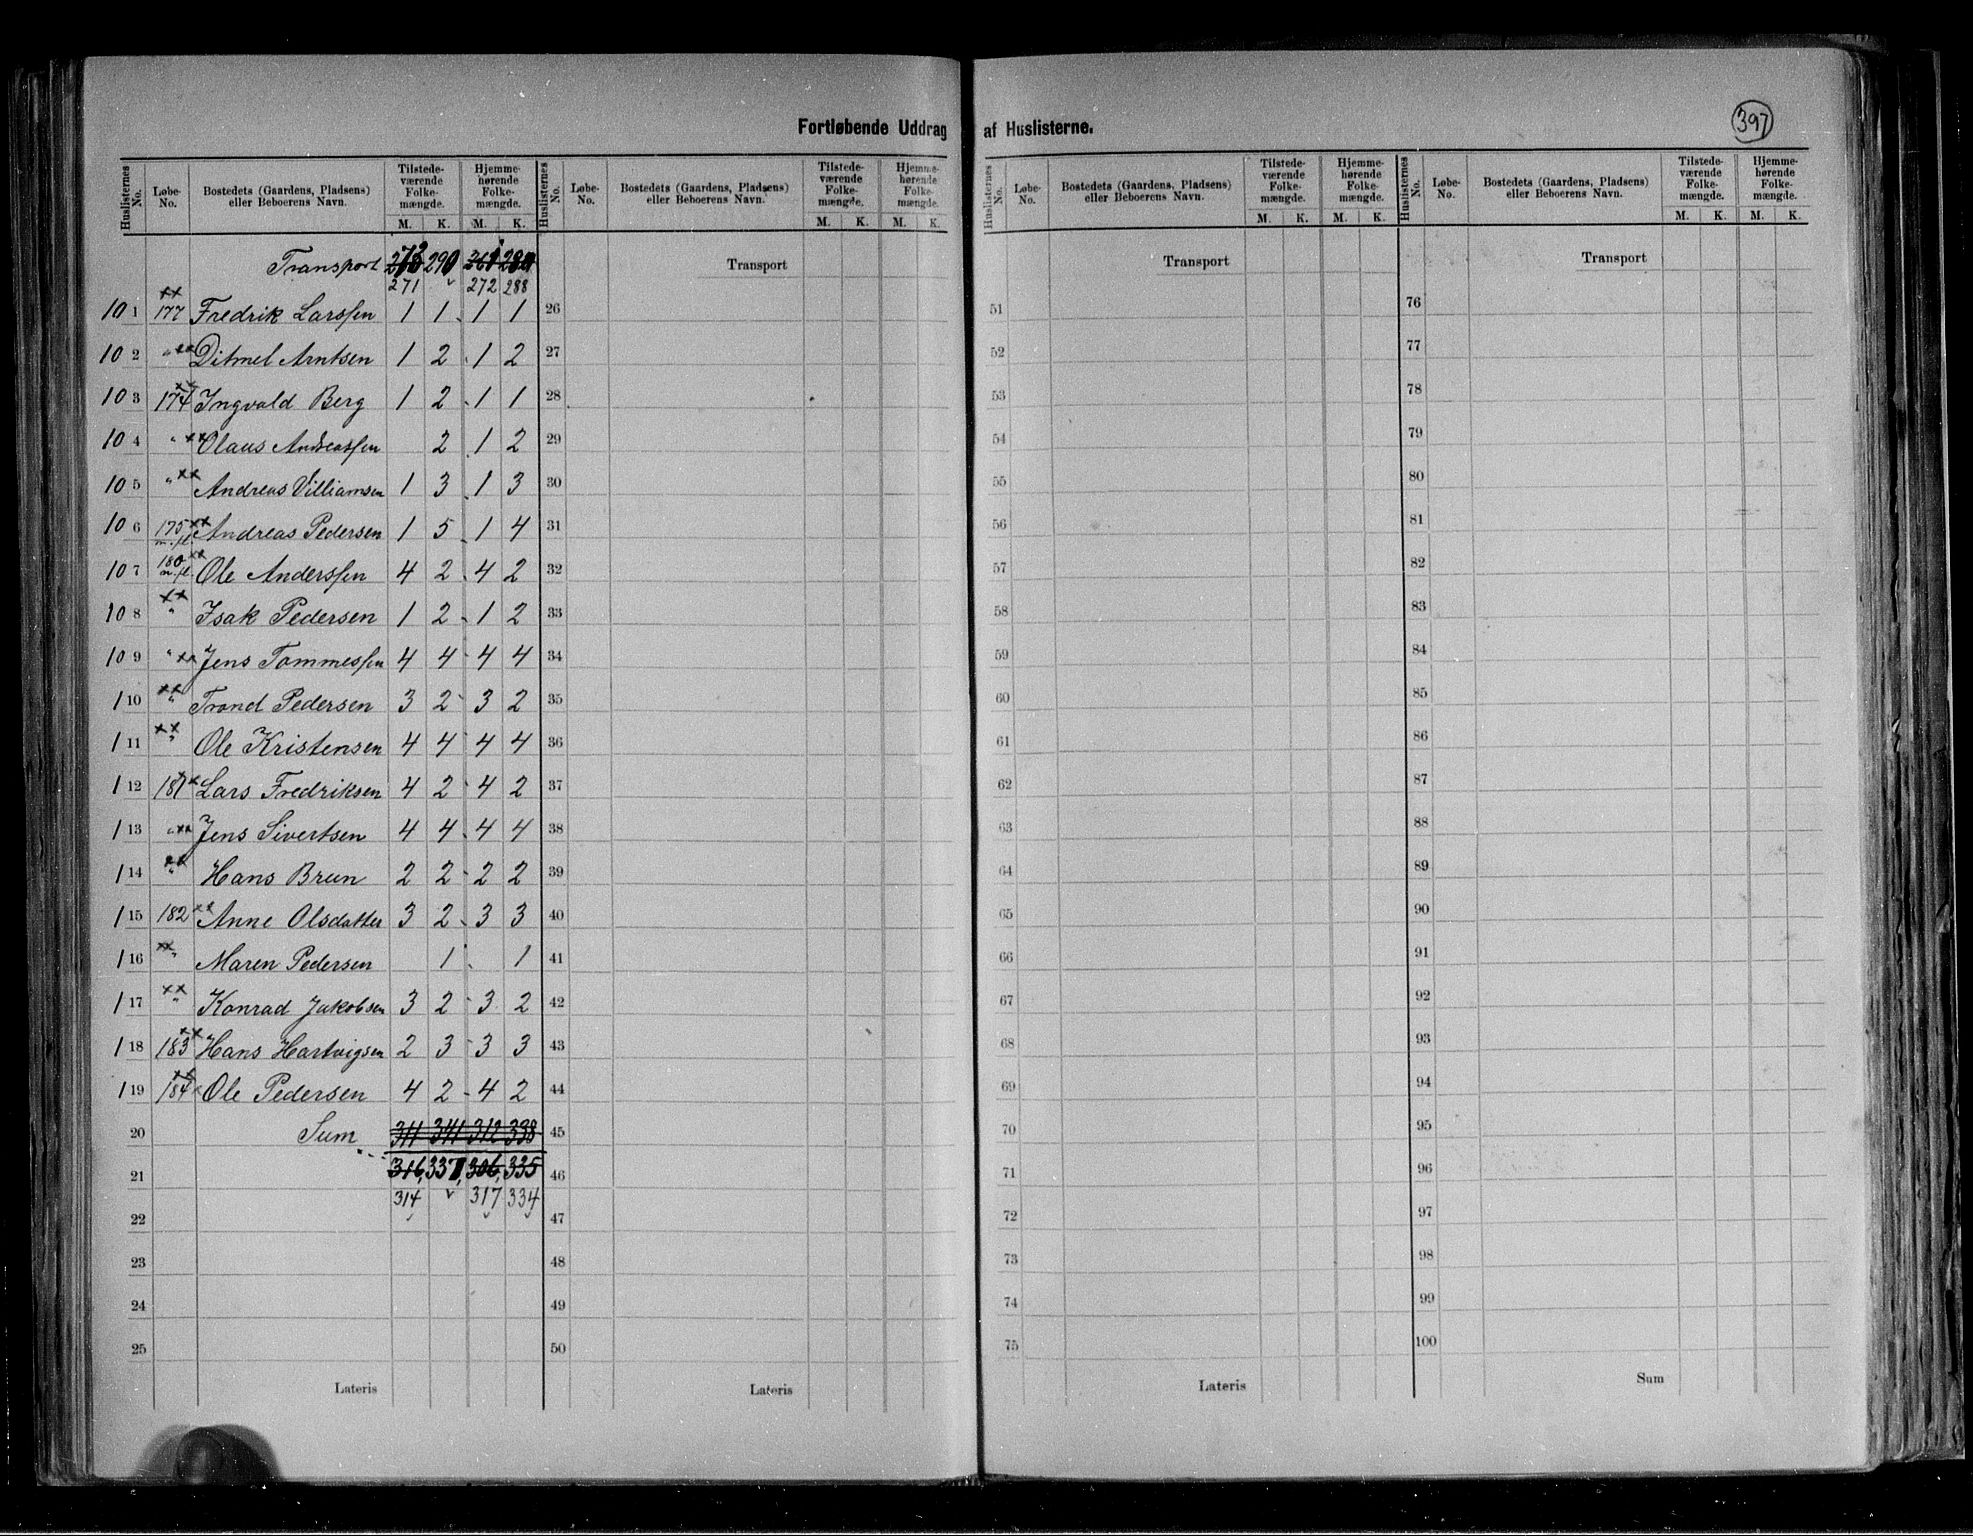 Fortløbende Uddrag af Huslisterne.
397
Huslisternes No. Løbe-No. Bostedets (Gaardens, Pladsens) eller Beboerens Navn. Tilstedeværende Folkemængde. M. K. Hjemmehørende Folkemængde. M. K.
Transport 290
271 272 288
101 177 Fredrik Larssen 1 1 1 1
102 " Ditmel Arntsen 1 2 1 2
103 174 Ingvald Berg 1 2 1 1
104 " Olaus Andreassen 2 1 2
105 " Andreas Villiamsen 1 3 1 3
106 175 m. fl. Andreas Pedersen 1 5 1 4
107 180 m. fl. Ole Anderssen 4 2 4 2
108 " Isak Pedersen 1 2 1 2
109 " Jens Tommessen 4 4 4 4
110 " Trond Pedersen 3 2 3 2
111 " Ole Kristensen 4 4 4 4
112 181 Lars Fredriksen 4 2 4 2
113 " Jens Sivertsen 4 4 4 4
114 " Hans Brun 2 2 2 2
115 182 Anne Olsdatter 3 2 3 3
116 " Maren Pedersen 1 1
117 " Konrad Jakobsen 3 2 3 2
118 183 Hans Hartvigsen 2 3 3 3
119 184 Ole Pedersen 4 2 4 2
20 Sum 311 341 312 338
21 316 337 306 335
314 317 334
22
23
24
25
Lateris
Huslisternes No. Løbe-No. Bostedets (Gaardens, Pladsens) eller Beboerens Navn. Tilstedeværende Folkemængde. M. K. Hjemmehørende Folkemængde. M. K.
Transport
26
27
28
29
30
31
32
33
34
35
36
37
38
39
40
41
42
43
44
45
46
47
48
49
50
Lateris
Huslisternes No. Løbe-No. Bostedets (Gaardens, Pladsens) eller Beboerens Navn. Tilstedeværende Folkemængde. M. K. Hjemmehørende Folkemængde. M. K.
Transport
51
52
53
54
55
56
57
58
59
60
61
62
63
64
65
66
67
68
69
70
71
72
73
74
75
Lateris
Huslisternes No. Løbe-No. Bostedets (Gaardens, Pladsens) eller Beboerens Navn. Tilstedeværende Folkemængde. M. K. Hjemmehørende Folkemængde. M. K.
Transport
76
77
78
79
80
81
82
83
84
85
86
87
88
89
90
91
92
93
94
95
96
97
98
99
100
Sum